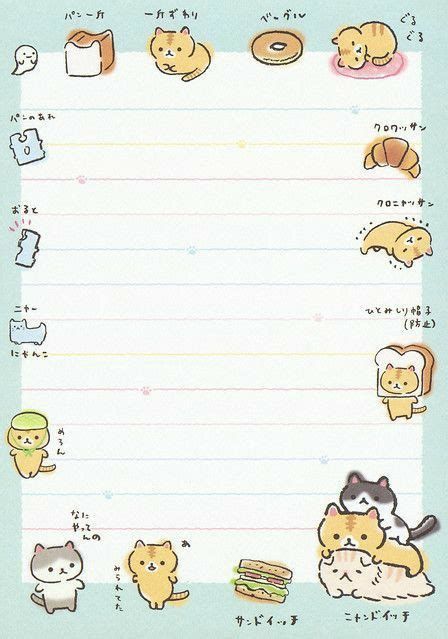 パン一斤
一斤ずわり
ベーグル
ぐる
ぐる
パンのあれ
クロワッサン
おると
クロニャッサン
ニャー
にゃんこ
ひとみしり帽子
(防止)
めろん
なに
やってんの
あ
みられてた
サンドイッチ
ニャンドイッチ